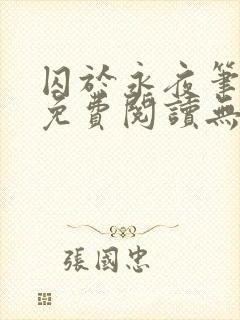 囚於永夜筆
免費閱讀無
張國忠